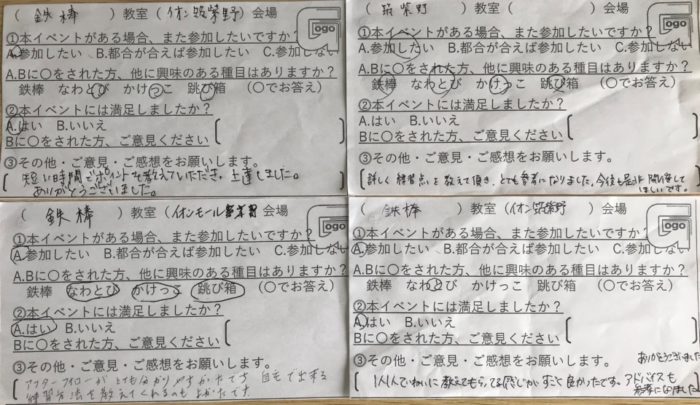 ( 鉄棒 ) 教室 (イオン筑紫野) 会場
logo
①本イベントがある場合、また参加したいですか?
A.参加したい B.都合が合えば参加したい C.参加しない
A.Bに〇をされた方、他に興味のある種目はありますか?
鉄棒 なわとび かけっこ 跳び箱 (〇でお答え)
②本イベントには満足しましたか?
A.はい B.いいえ
Bに〇をされた方、ご意見ください
③その他・ご意見・ご感想をお願いします。
短い時間でポイントを教えていただき、上達しました。
ありがとうございました。
( 筑紫野 ) 教室 ( ) 会場
logo
①本イベントがある場合、また参加したいですか?
A.参加したい B.都合が合えば参加したい C.参加しない
A.Bに〇をされた方、他に興味のある種目はありますか?
鉄棒 なわとび かけっこ 跳び箱 (〇でお答え)
②本イベントには満足しましたか?
A.はい B.いいえ
Bに〇をされた方、ご意見ください
③その他・ご意見・ご感想をお願いします。
詳しく練習点を教えて頂き、とても参考になりました。今後も是非開催して
ほしいです。
( 鉄棒 ) 教室 (イオンモール筑紫野 会場
logo
①本イベントがある場合、また参加したいですか?
A.参加したい B.都合が合えば参加したい C.参加しない
A.Bに〇をされた方、他に興味のある種目はありますか?
鉄棒 なわとび かけっこ 跳び箱 (〇でお答え)
②本イベントには満足しましたか?
A.はい B.いいえ
Bに〇をされた方、ご意見ください
③その他・ご意見・ご感想をお願いします。
アフターフォローがとても分かりやすかったです 自宅で出来る
練習方法を教えてくれるのも よかったです
( 鉄棒 ) 教室 (イオン筑紫野 ) 会場
logo
①本イベントがある場合、また参加したいですか?
A.参加したい B.都合が合えば参加したい C.参加しない
A.Bに〇をされた方、他に興味のある種目はありますか?
鉄棒 なわとび かけっこ 跳び箱 (〇でお答え)
②本イベントには満足しましたか?
A.はい B.いいえ
Bに〇をされた方、ご意見ください
③その他・ご意見・ご感想をお願いします。
1人1人ていねいに教えてもらってる感じがすごく良かったです。アドバイスも
参考になりました
ありがとうございました